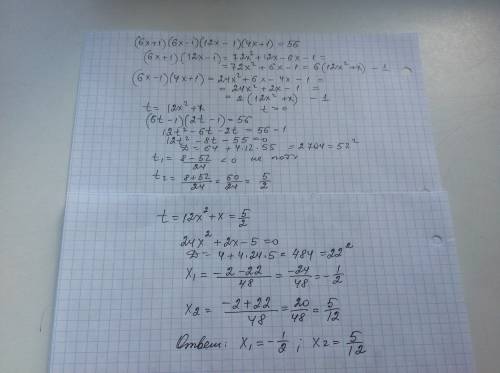 (6x+1)(6x-1)(12x-1)(4x+1)=56
(6x+1)(12x-1)=72x²+12x-6x-1=
=72x²+6x-1=6(12x²+x)-1
(6x-1)(4x+1)=24x²+6x-4x-1=
=24x²+2x-1=
=2(12x²+x)-1
t=12x²+x t>0
(6t-1)(2t-1)=56
12t²-6t-2t=56-1
12t²-8t-55=0
D=64+4·12·55=2704=52²
t₁=(8-52)/24<0 не подх
t₂=(8+52)/24=60/24=5/2
t=12x²+x=5/2
24x²+2x-5=0
D=4+4·24·5=484=22²
x₁=(-2-22)/48=-24/48=-1/2
x₂=(-2+22)/48=20/48=5/12
Ответ: x₁=-1/2; x₂=5/12